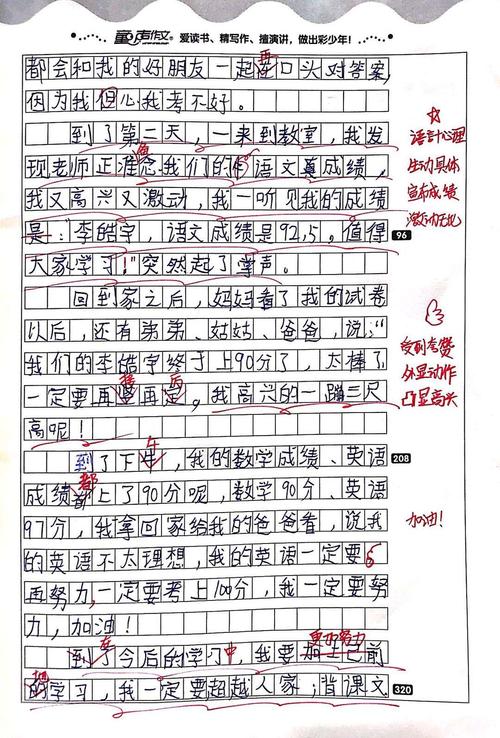 童声作文 爱读书、精写作、擅演讲，做出彩少年！
都会和我的好朋友一起再口头对答案，
因为我但心我考不好。
到了第二天，一来到教室，我发
现老师正准念我们的语文成绩，
我又高兴又激动，我一听见我的成绩
是："李皓宇，语文成绩是92,5。值得
大家学习！"突然起了掌声。
回到家之后，妈妈看了我的试卷
以后，还有弟弟、姑姑、爸爸，说："
我们的李皓宇终于上90分了，太棒了
一定要再接再后，我高兴的一蹦三尺
高呢！
到了下午，我的数学成绩、英语
成绩都上了90分呢，数学90分、英语
97分，我拿回家给我的爸爸看，说我
的英语不太理想，我的英语一定要
再努力，一定要考上100分，我一定要努
力，加油！
到了今后的学习中，我要加上已前
的学习，我一定要超越人家；背课文
语言十心理
生动具体
宣布成绩
激动无比
96
受到夸赞
外显动作
凸显高兴
208
加油！
更加努力
320